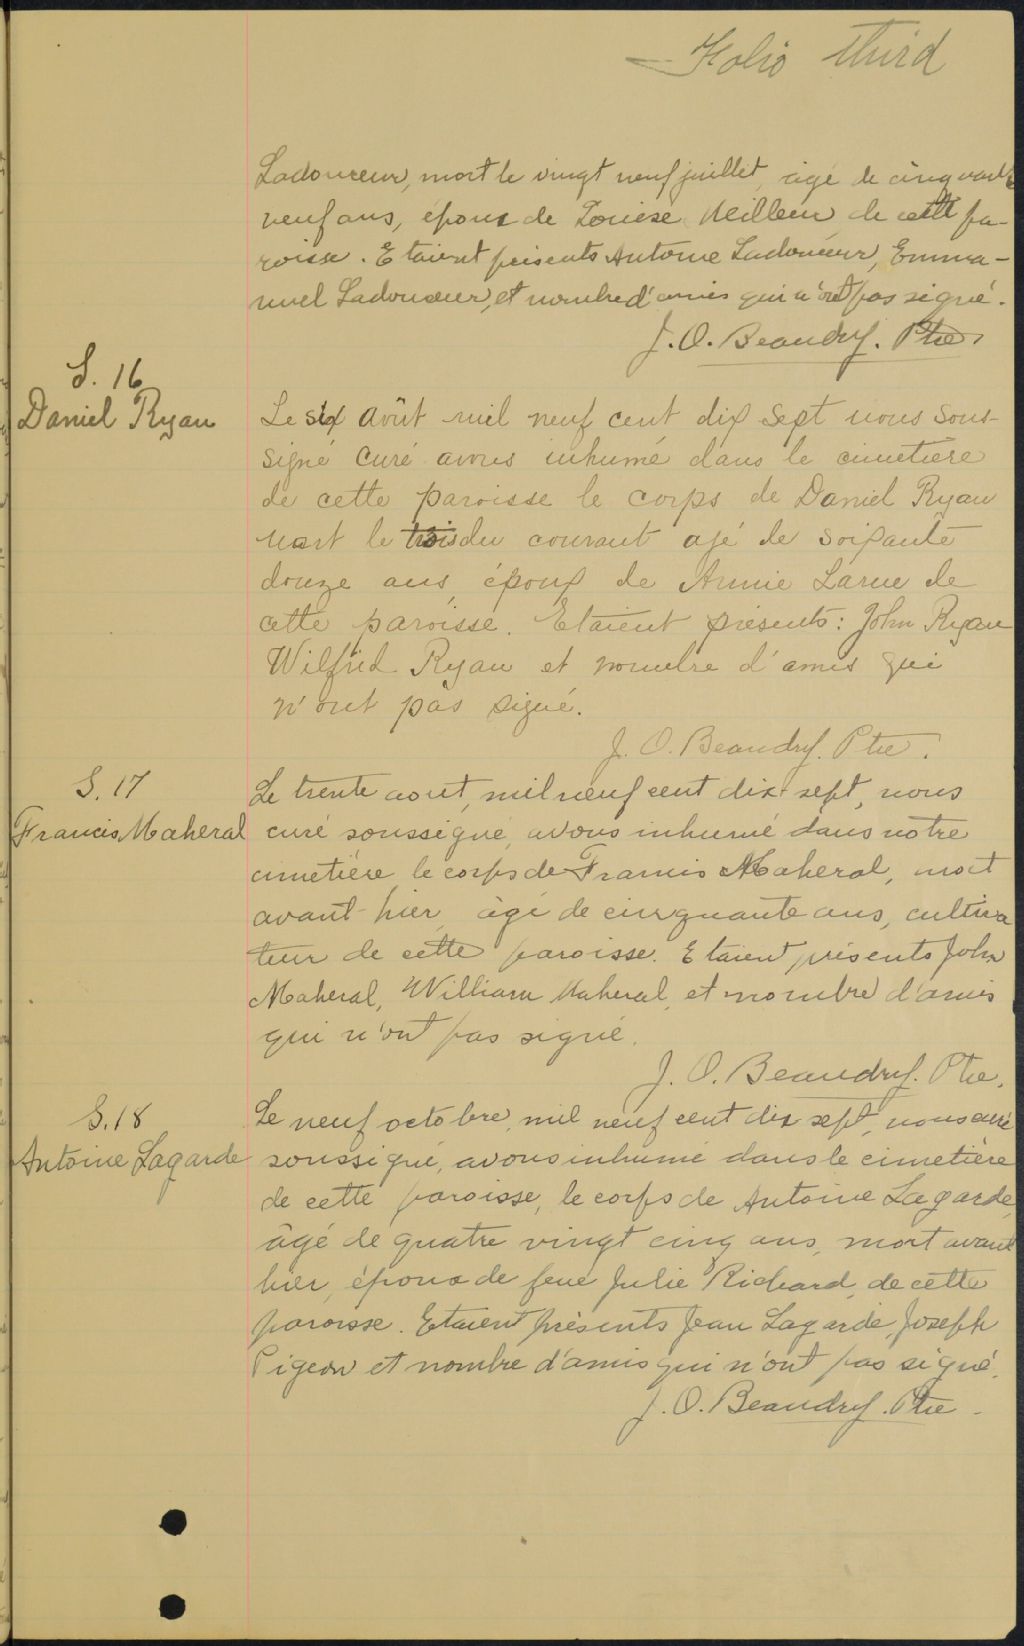 Folio third
Ladouceur, mort le vingt neuf juillet, âgé de cinquante
neuf ans, époux de Louise Meilleur de cette pa-
roisse. Etaient présents Antoine Ladouceur, Emma-
nuel Ladouceur, et nombre d'amis qui n'ont pas signé.
J. O. Beaudry. Ptre
S. 16
Daniel Ryan
Le six Août mil neuf cent dix sept nous sous-
signé curé avons inhumé dans le cimetière
de cette paroisse le corps de Daniel Ryan
mort le trois du courant agé de soixante
douze ans, époux de Annie Larue de
cette paroisse. Etaient présents: John Ryan
Wilfrid Ryan et nombre d'amis qui
n'ont pas signé.
J. O. Beaudry. Ptre.
S. 17
Francis Maheral
Le trente aout, mil neuf cent dix sept, nous
curé soussigné, avons inhumé dans notre
cimetière, le corps de Francis Maheral, mort
avant-hier, âgé de cinquante ans, cultiva
teur de cette paroisse. Etaient présents John
Maheral, William Maheral, et nombre d'amis
qui n'ont pas signé.
J. O. Beaudry. Ptre.
S. 18
Antoine Lagarde
Le neuf octobre, mil neuf cent dix sept, nous curé
soussigné, avons inhumé dans le cimetière
de cette paroisse, le corps de Antoine Lagarde,
âgé de quatre vingt cinq ans, mort avant
hier, époux de feue Julie Richard, de cette
paroisse. Etaient présents Jean Lagarde, Joseph
Pigeon et nombre d'amis qui n'ont pas signé.
J. O. Beaudry. Ptre.